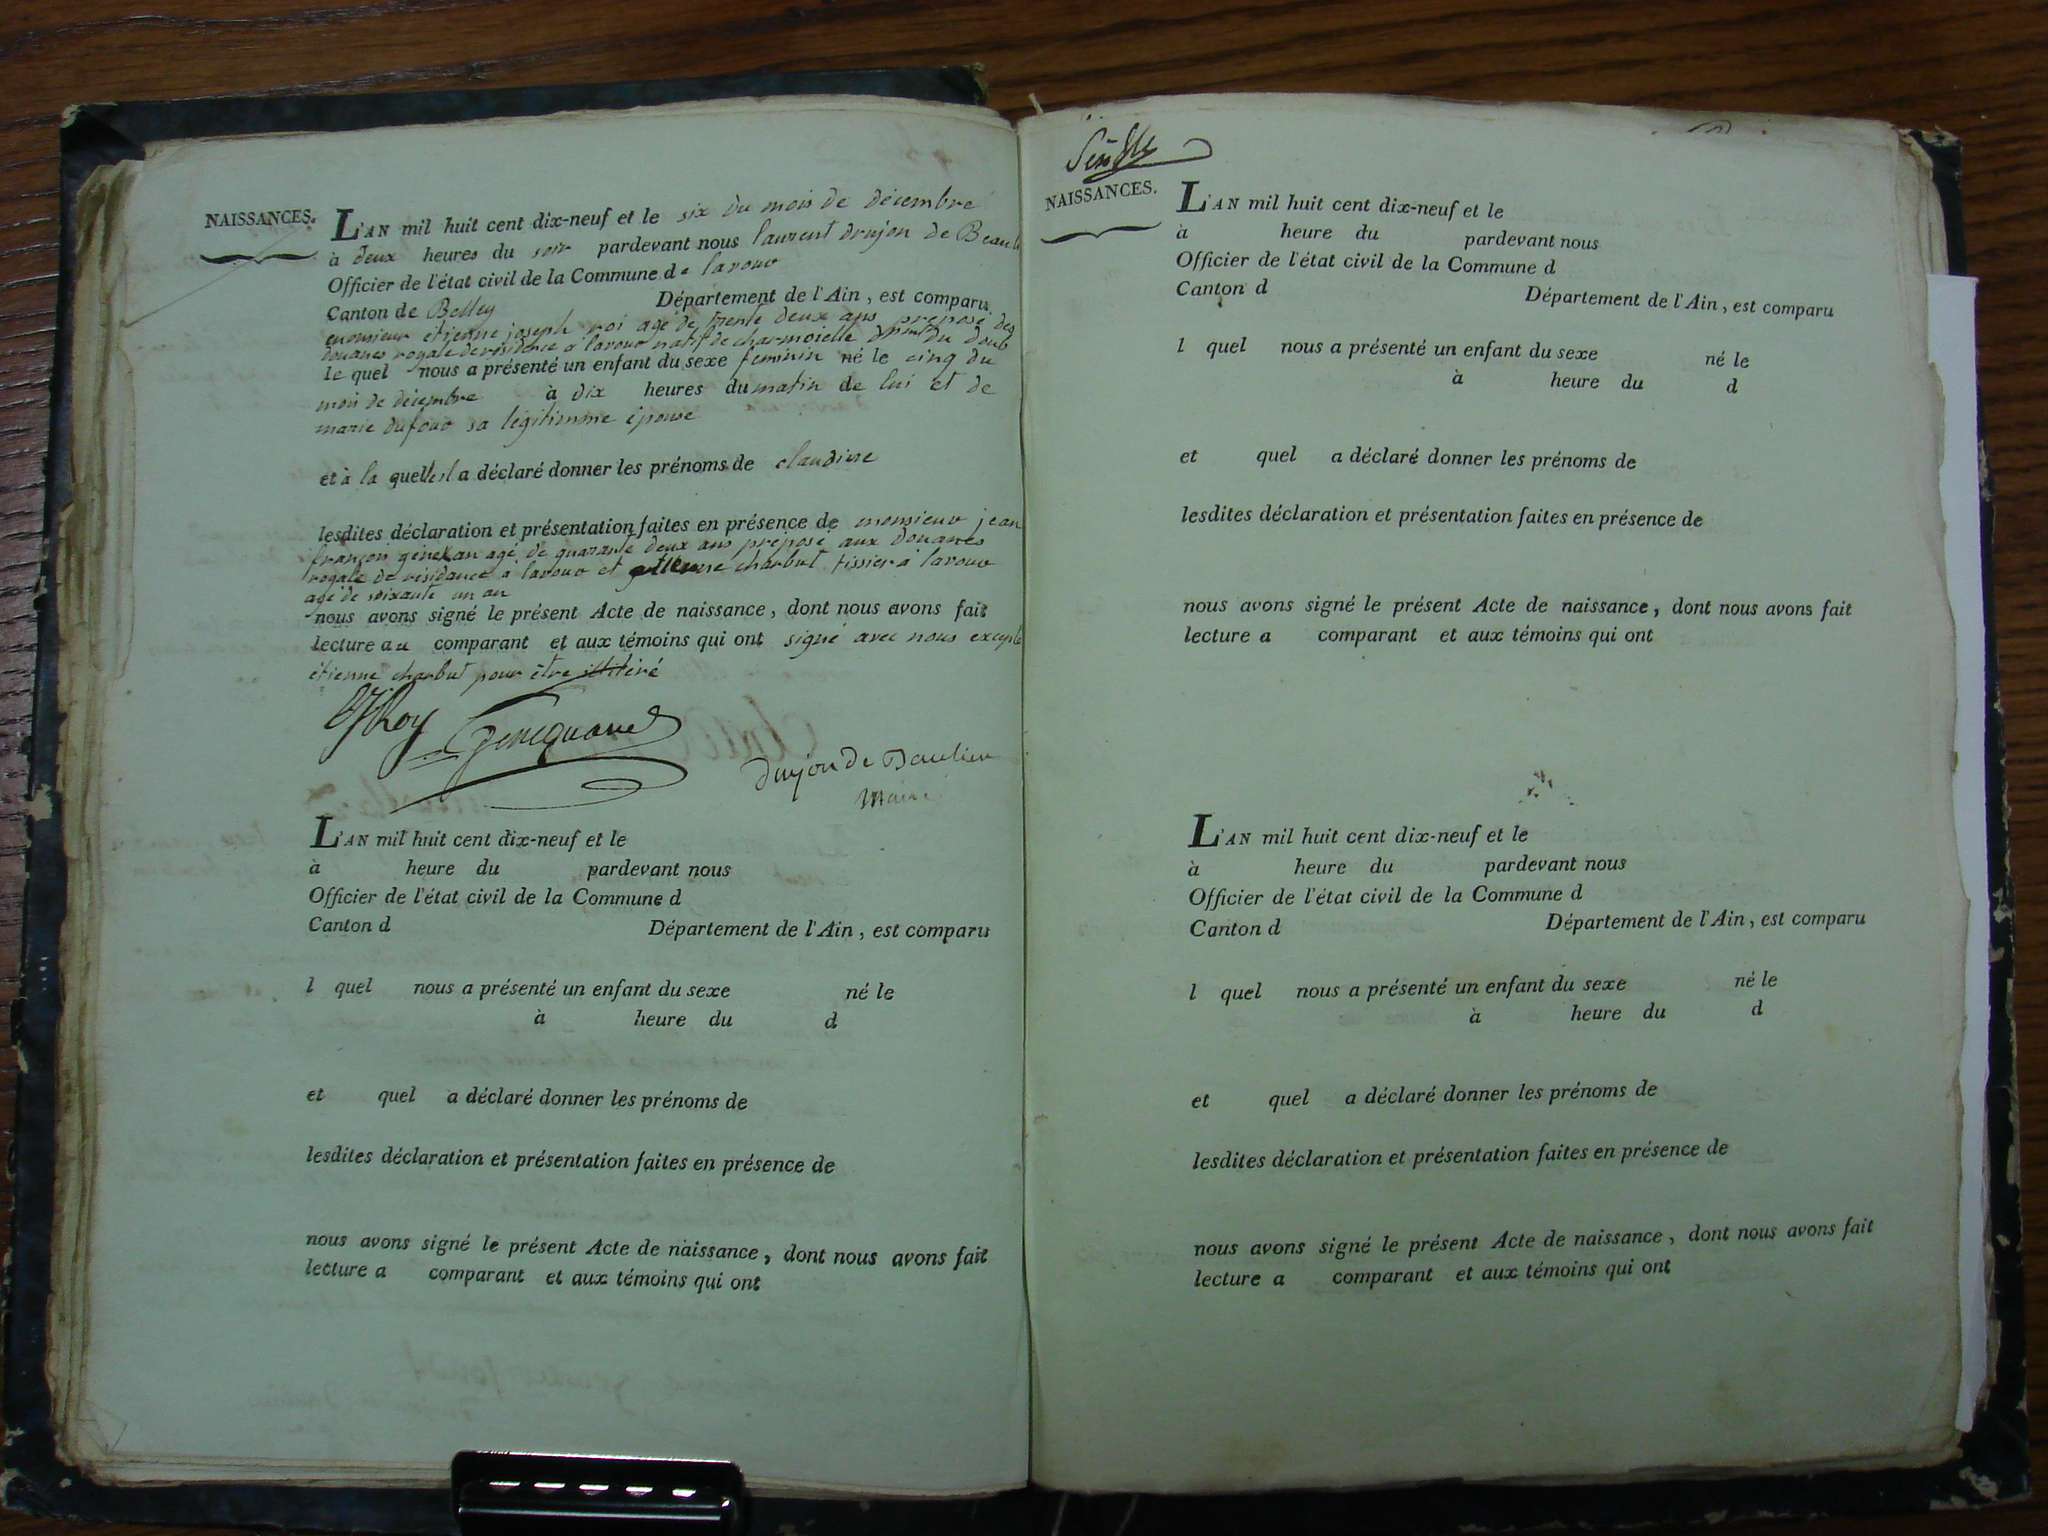 NAISSANCES.
L'AN mil huit cent dix-neuf et le six du mois de décembre
à deux heures du soir pardevant nous laurent drujon de Beaul
Officier de l'état civil de la Commune de lavour
Canton de Belley Département de l'Ain, est comparu
monsieur étienne joseph roi agé de trente deux ans preposé des
douanes royale de résidence à lavour natif de charmoielle dpmt du doub
le quel nous a présenté un enfant du sexe feminin né le cinq du
mois de décembre à dix heures du matin de lui et de
marie dufour sa légitimme épouse
et à la quelle il a déclaré donner les prénoms de claudine
lesdites déclaration et présentation faites en présence de monsieur jean
françoi agé de quarante deux ans preposé aux douanes
royale de résidance à lavour et etienne charbut tissier à lavour
agé de soixante un an
nous avons signé le présent Acte de naissance, dont nous avons fait
lecture au comparant et aux témoins qui ont signé avec nous excepté
étienne charbut pour être illitéré
EJRoy
drujon de Baulieu
Maire
L'AN mil huit cent dix-neuf et le
à heure du pardevant nous
Officier de l'état civil de la Commune d
Canton d Département de l'Ain, est comparu
l quel nous a présenté un enfant du sexe né le
à heure du d
et quel a déclaré donner les prénoms de
lesdites déclaration et présentation faites en présence de
nous avons signé le présent Acte de naissance, dont nous avons fait
lecture a comparant et aux témoins qui ont
NAISSANCES.
L'AN mil huit cent dix-neuf et le
à heure du pardevant nous
Officier de l'état civil de la Commune d
Canton d Département de l'Ain, est comparu
l quel nous a présenté un enfant du sexe né le
à heure du d
et quel a déclaré donner les prénoms de
lesdites déclaration et présentation faites en présence de
nous avons signé le présent Acte de naissance, dont nous avons fait
lecture a comparant et aux témoins qui ont
L'AN mil huit cent dix-neuf et le
à heure du pardevant nous
Officier de l'état civil de la Commune d
Canton d Département de l'Ain, est comparu
l quel nous a présenté un enfant du sexe né le
à heure du d
et quel a déclaré donner les prénoms de
lesdites déclaration et présentation faites en présence de
nous avons signé le présent Acte de naissance, dont nous avons fait
lecture a comparant et aux témoins qui ont